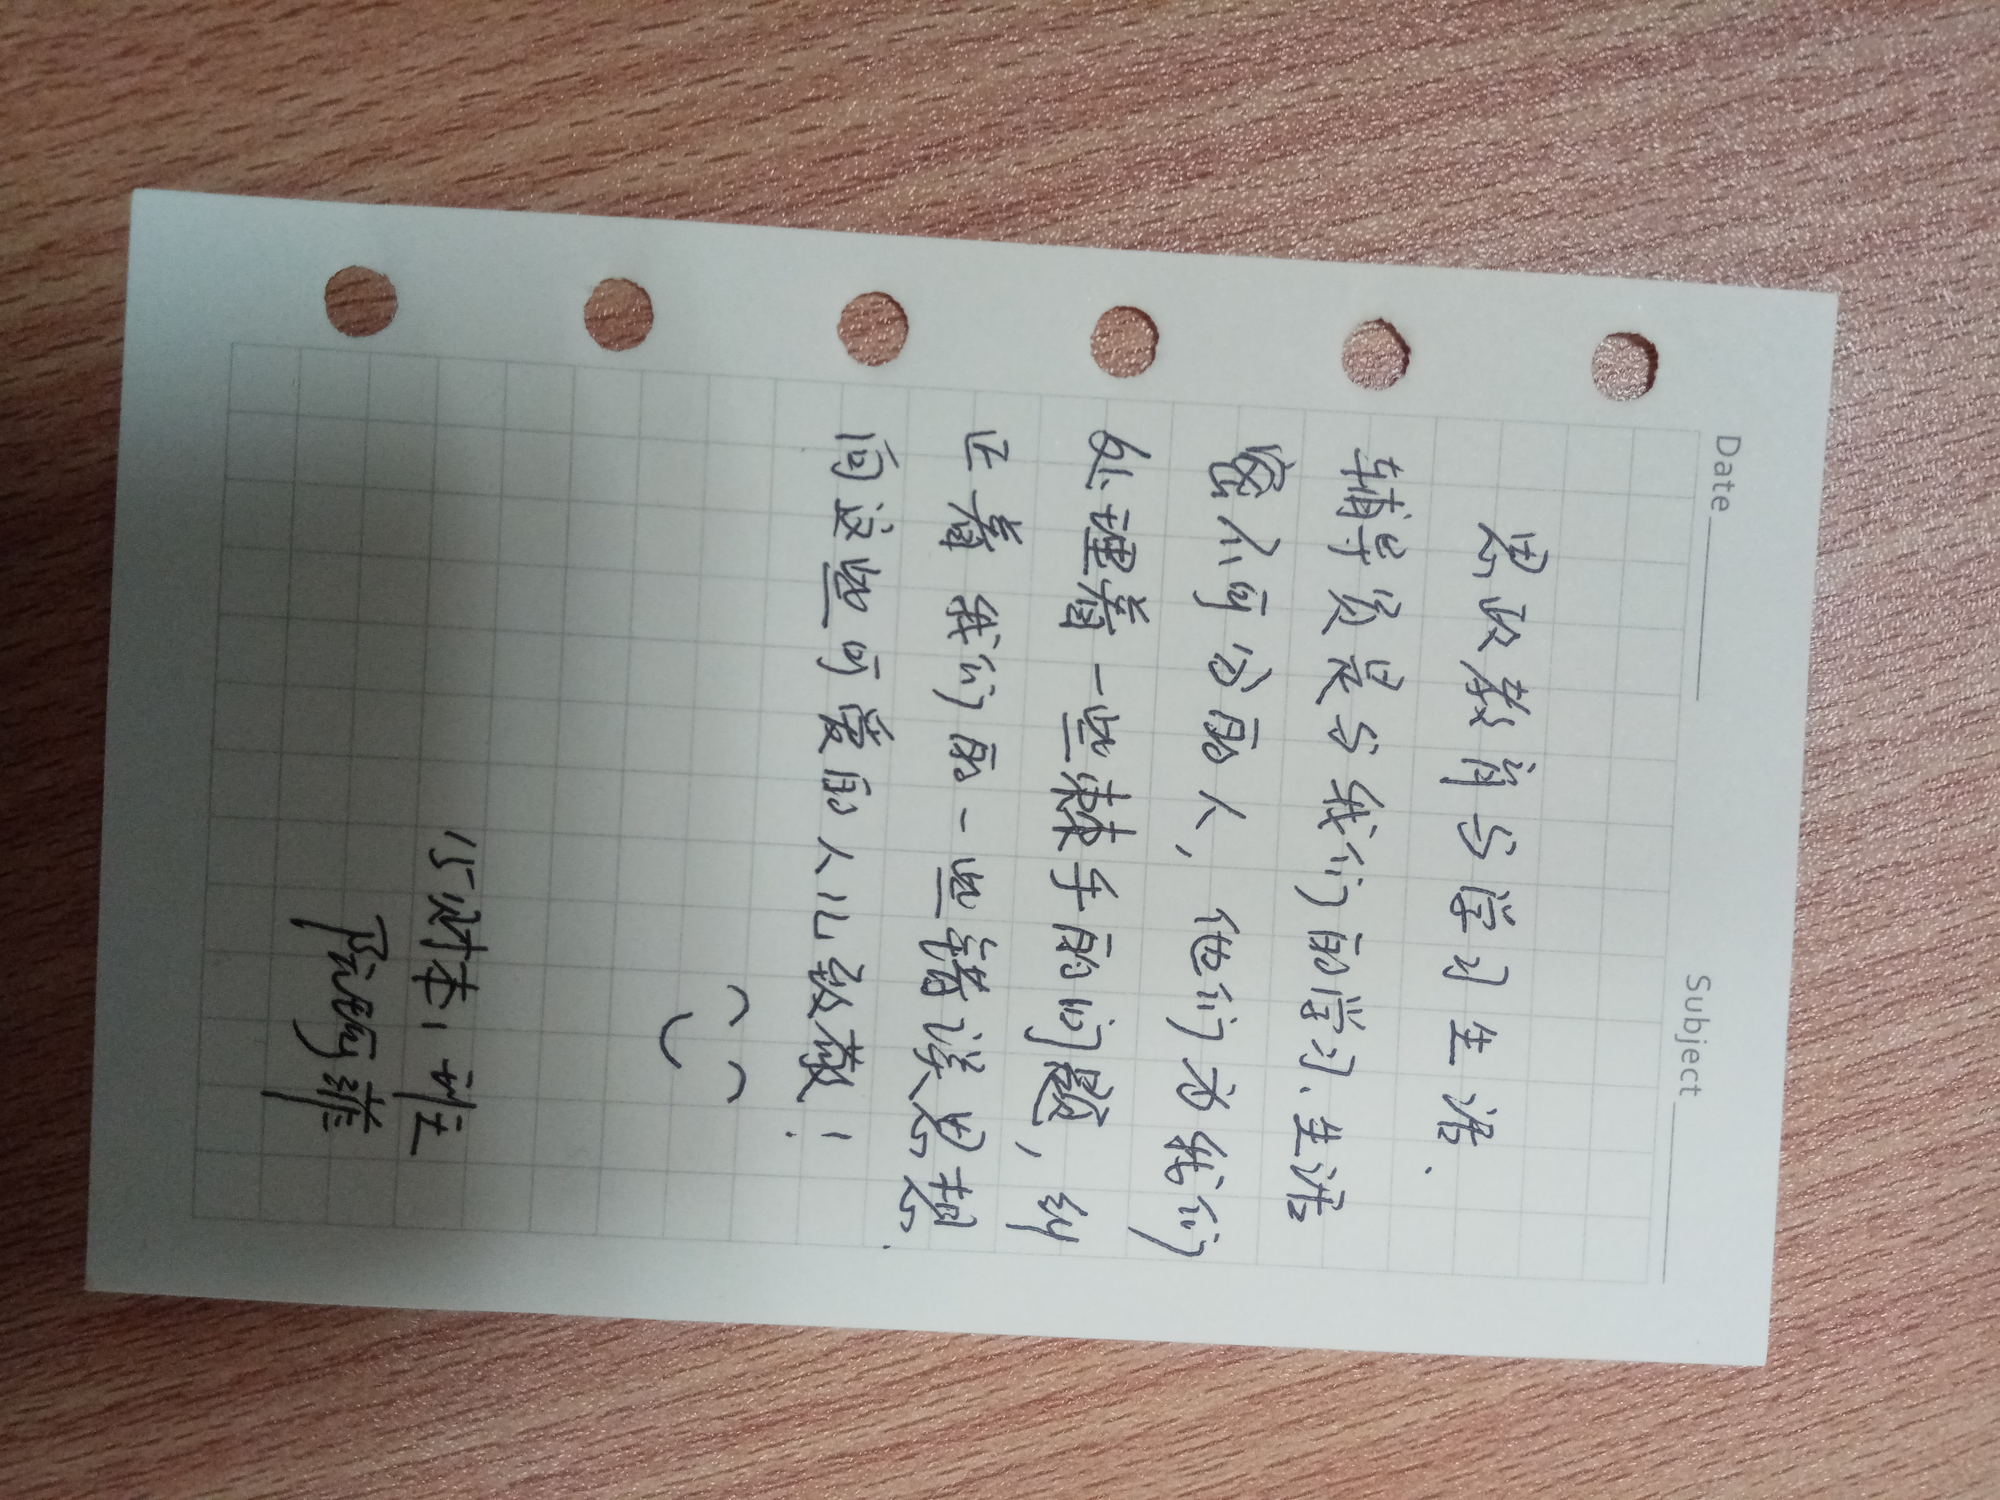 Date Subject
思政教育与学习生活.
辅导员是与我们的学习、生活
密不可分的人, 他们为我们
处理着一些棘手的问题, 纠
正着我们的一些错误思想.
向这些可爱的人儿致敬!
15财本1班